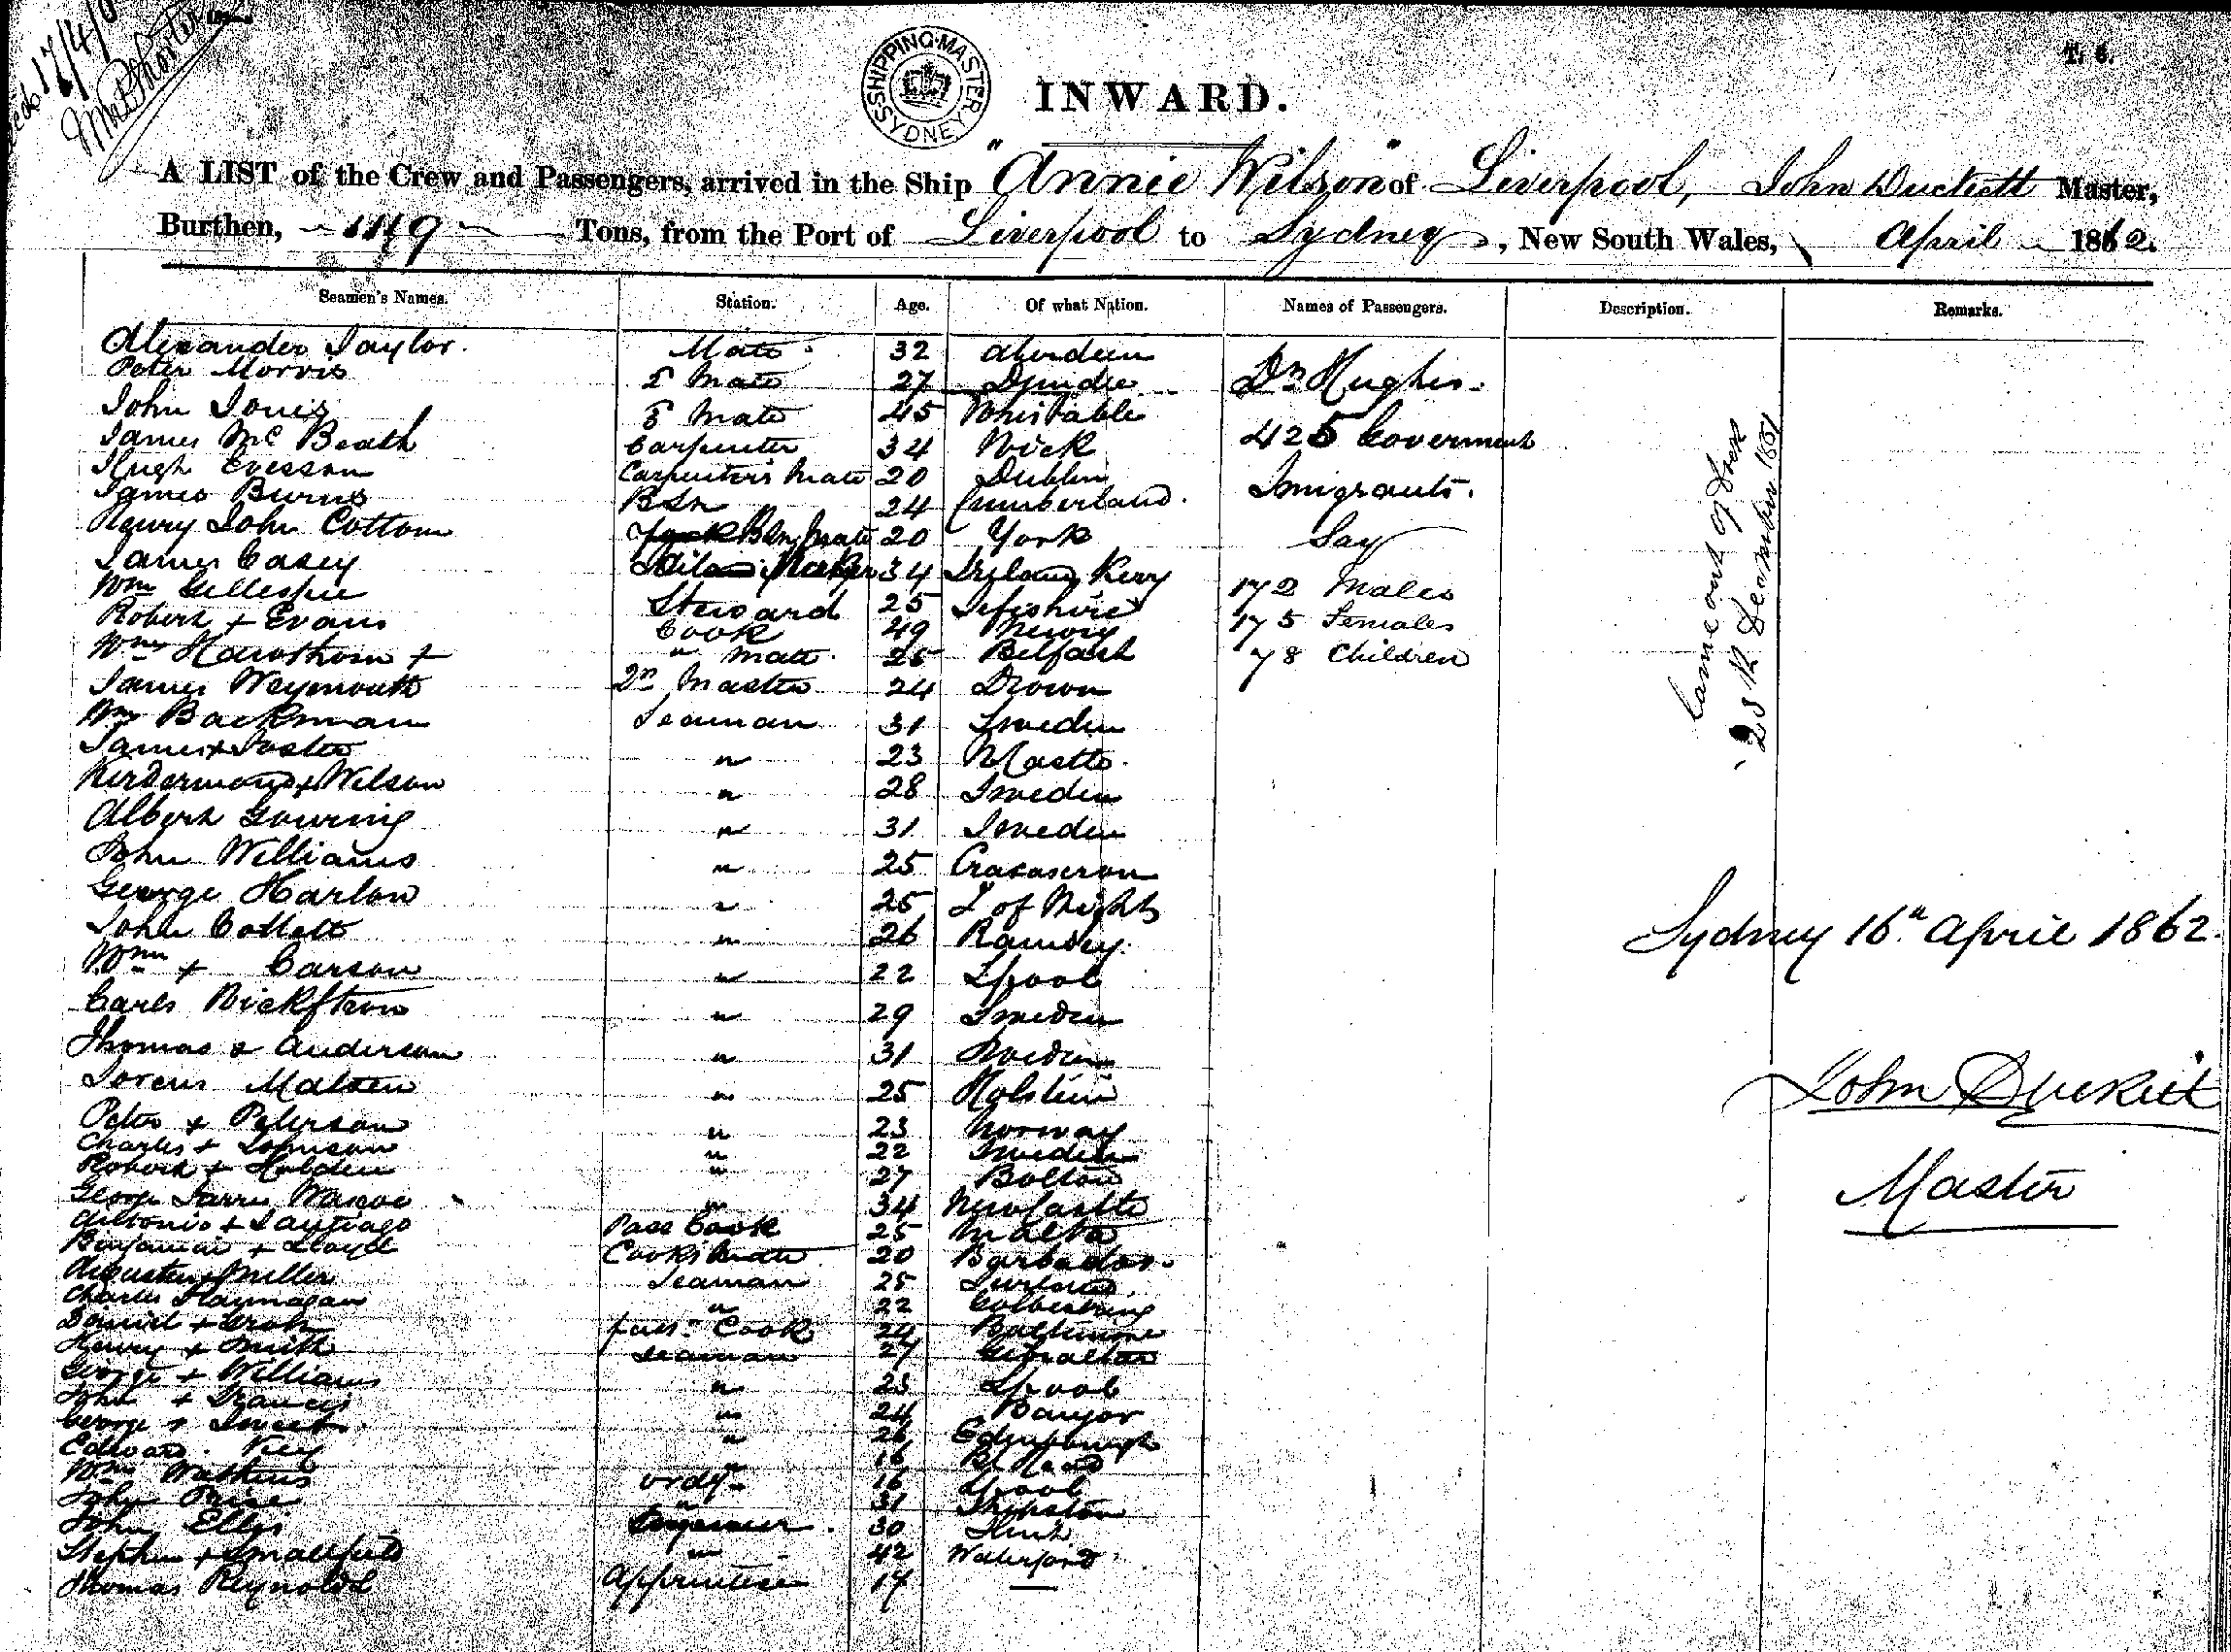 SHIPPING MASTER
SYDNEY
T. 6.
INWARD.
A LIST of the Crew and Passengers, arrived in the Ship "Annie Wilson" of Liverpool, John Duckett Master,
Burthen, 1119 Tons, from the Port of Liverpool to Sydney, New South Wales, April 1862.
Seamen's Names. Station. Age. Of what Nation. Names of Passengers. Description. Remarks.
Alexander Taylor. Mate 32 Aberdeen
Peter Morris 2 Mate 27 Dundee Dr Hughes.
John Jones 3 Mate 45 Whistable
James McBeath Carpenter 34 Wick 425 Goverment
Hugh Evesson Carpenter's Mate 20 Dublin
James Burns BSn 24 Cumberland. Imigrants.
Henry John Cottom BSn Mate 20 York Say
James Casey Sail Maker 34 Ireland Kerry
Wm Gillespie Steward 25 Fifeshire 172 Males
Robert + Evans Cook 49 Newry 175 Females
Wm Hawthorn + " Mate 25 Belfast 78 Children
James Weymouth Master 24
Wm Backman Seaman 31 Sweden
James + Foster " 23
+ Wilson " 28 Sweden
Albert Gowring " 31 Sweden
John Williams " 25
George Harlow " 25 I of Wight
John Collett " 26 Ramsey
Wm + Carson " 22 Lpool
Carls Wickstrom " 29 Sweden
Thomas + Anderson " 31 Sweden
Lorens Matsen " 25 Holstein
Peter + Peterson " 23 Norway
Charles + Johnson " 22 Sweden
Robert + Holden " 27 Bolton
George " 34 Newcastle
Antonio + Santiago Pass Cook 25 Malta
Benjamin + Lloyd Cook's Mate 20 Barbados.
+ Miller Seaman 25
Charles Flannagan " 22
Daniel + pass. Cook 24 Baltimore
Henry + Smith Seaman 27 Gibraltar
George + Williams " 25 Lpool
John + Francis " 24 Bangor
George + Sweet " 26 Edinborough
Edward " 16
Wm Watkins ordy 16 Lpool
John Price " 31
John Ellis Engineer. 30 Flint
Stephen + Smallfield " 42 Waterford
Thomas Reynolds Apprentice 17 —
Came out of Dock
28th December 1861
Sydney 16th April 1862.
John Duckett
Master